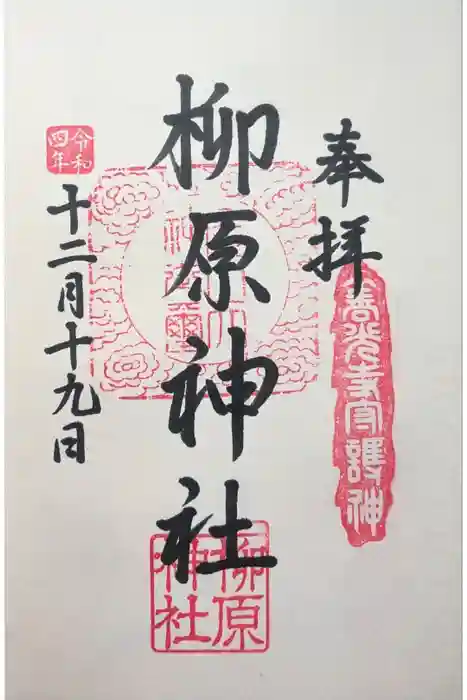 奉拝
善光寺守護神
柳原神社
柳原神社
令和四年
十二月十九日